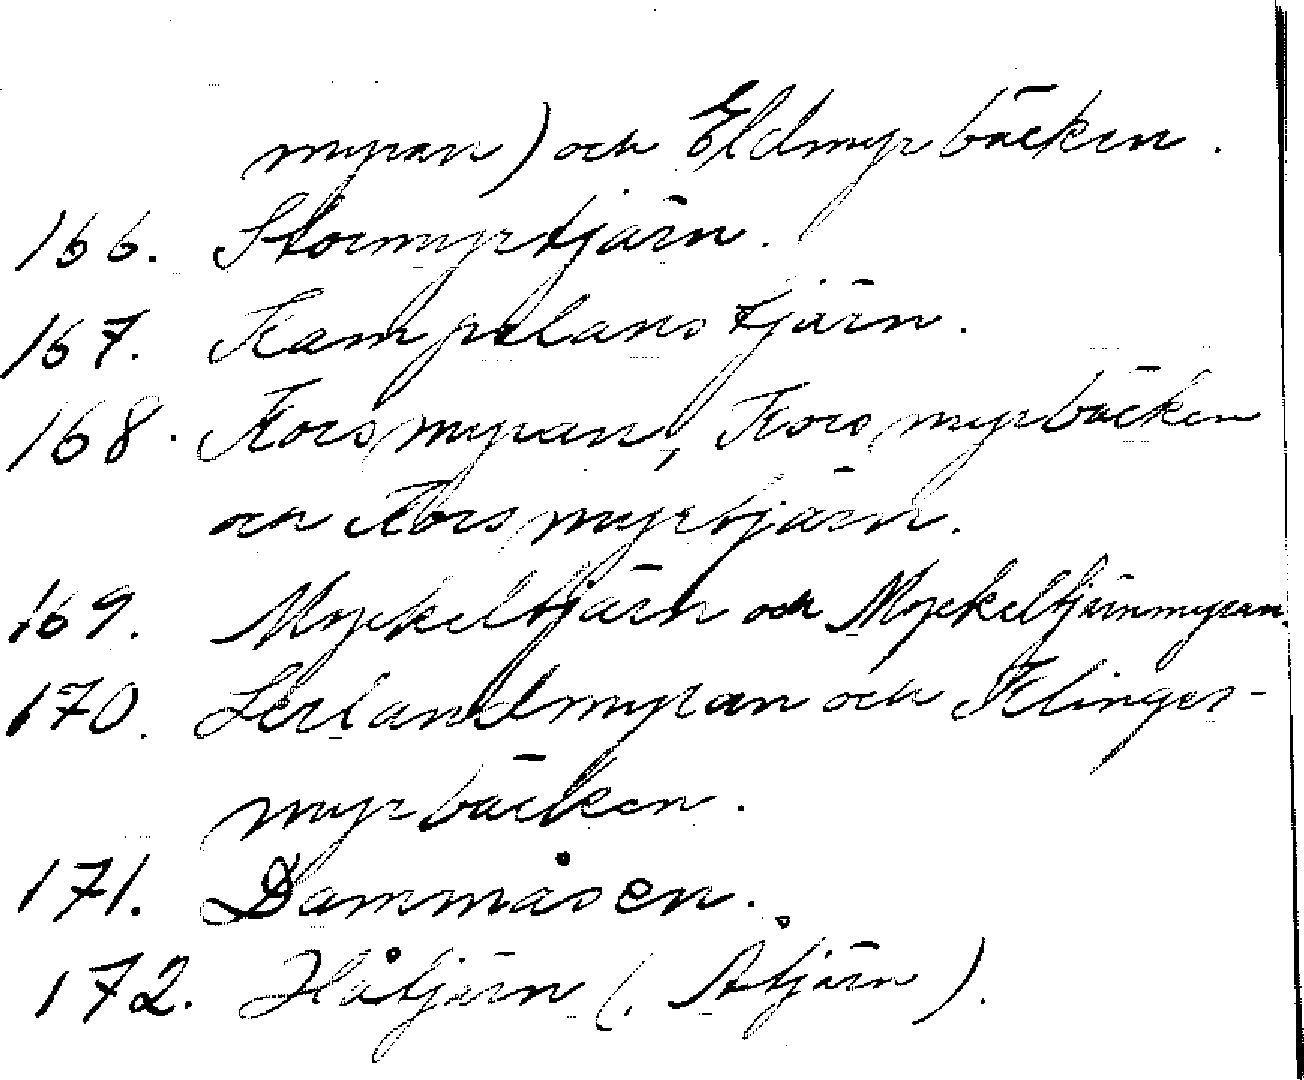 myran) och Eldmyrbäcken.
166. Stormyrtjärn.
167. Kampelanstjärn.
168. Korsmyran, Korsmyrbäcken
och Korsmyrtjärn.
169. Myckeltjärn och Myckeltjärnmyran.
170. Lerlandmyran och Klinger-
myrbäcken.
171. Dammåsen.
172. Håtjärn (. Åtjärn).